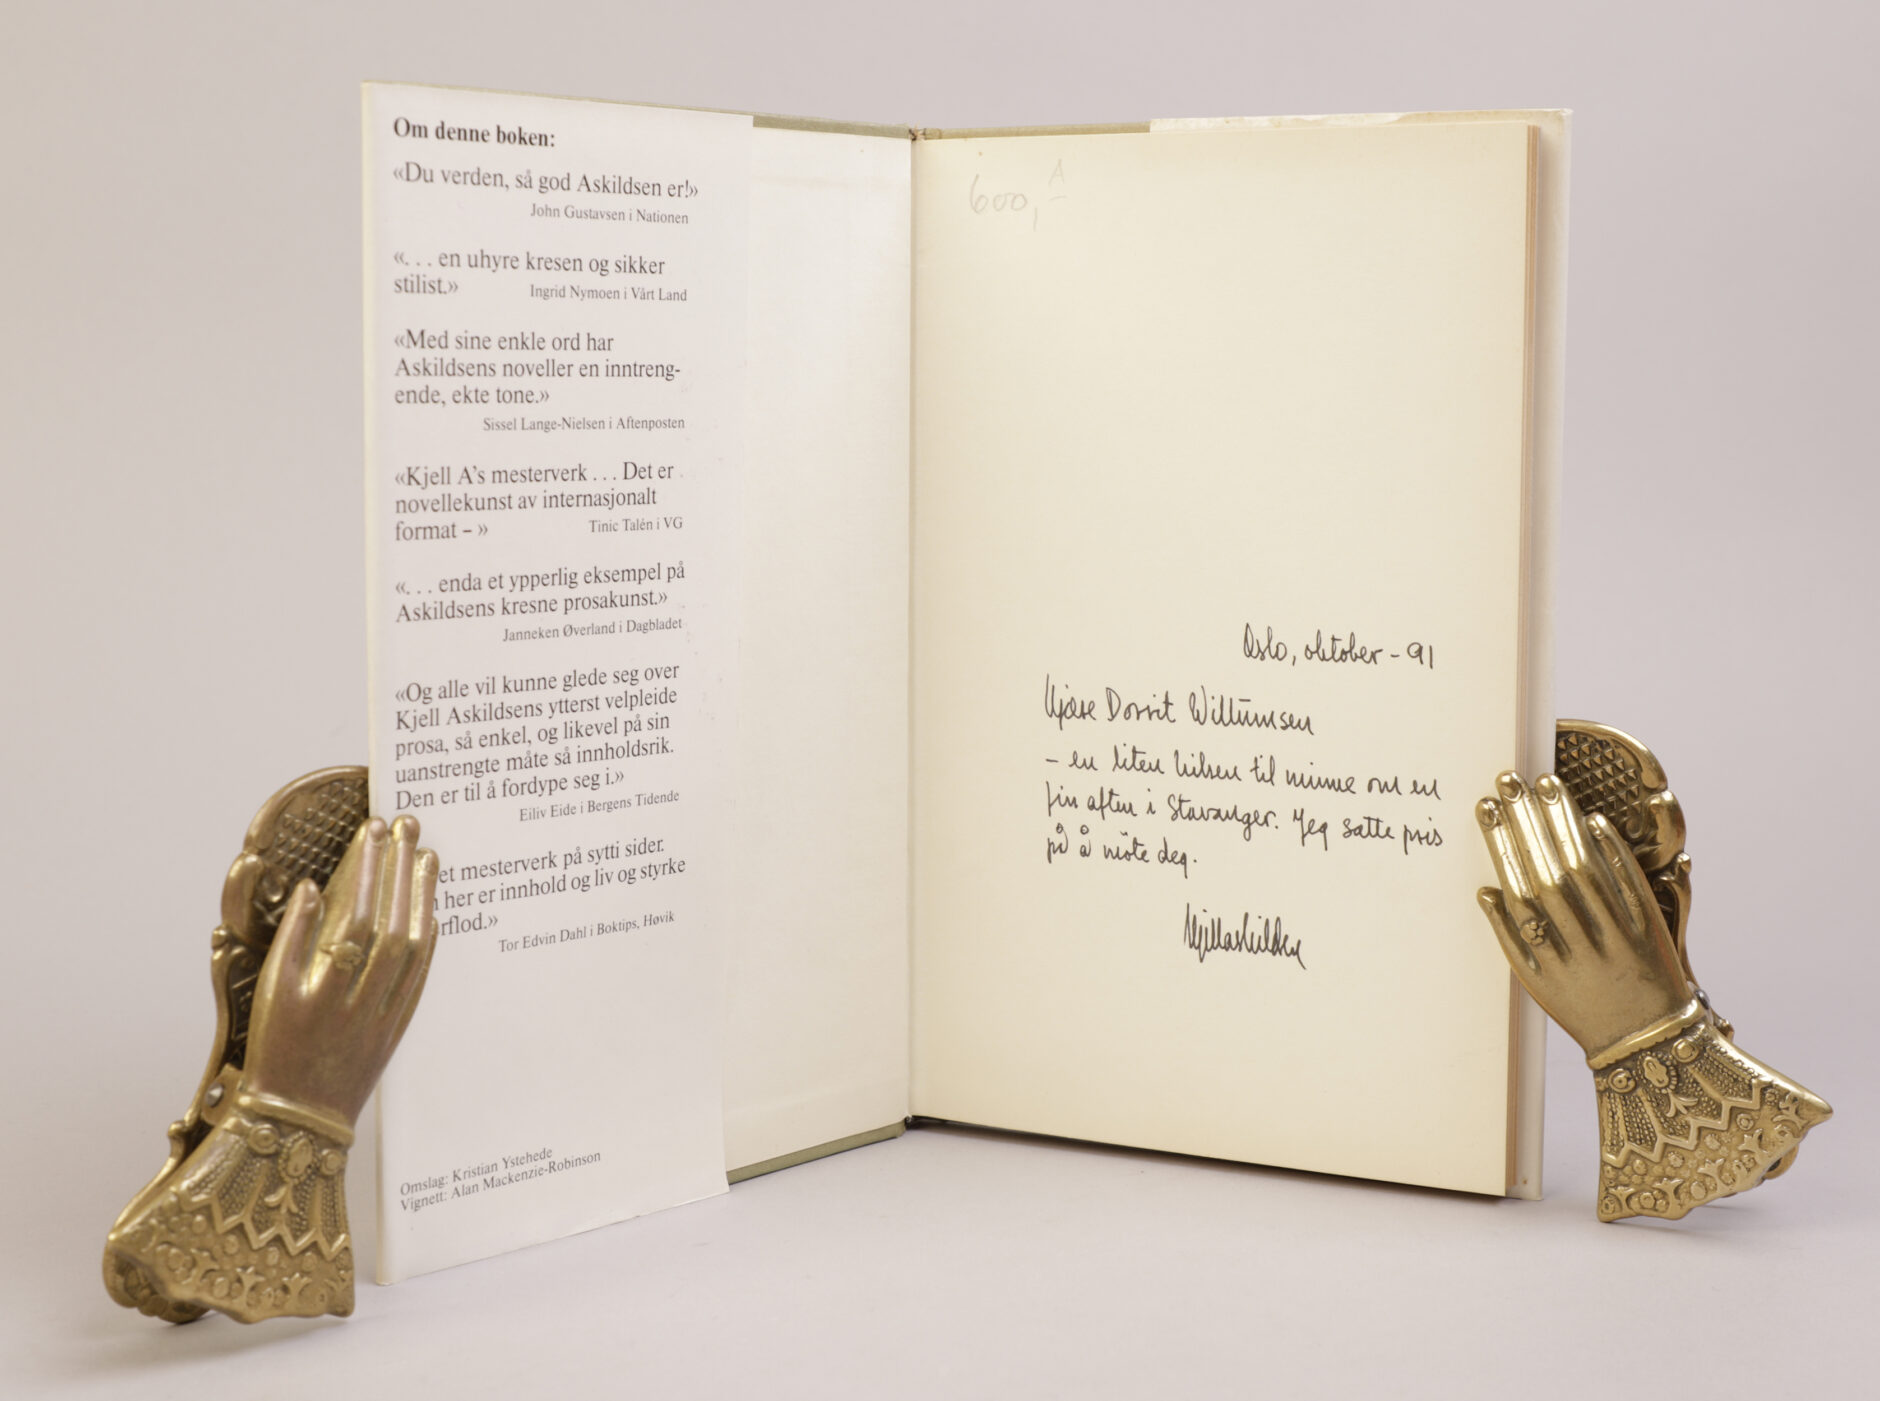 Om denne boken:
«Du verden, så god Askildsen er!»
John Gustavsen i Nationen
«. . . en uhyre kresen og sikker
stilist.»
Ingrid Nymoen i Vårt Land
«Med sine enkle ord har
Askildsens noveller en inntreng-
ende, ekte tone.»
Sissel Lange-Nielsen i Aftenposten
«Kjell A's mesterverk . . . Det er
novellekunst av internasjonalt
format – »
Tinic Talén i VG
«. . . enda et ypperlig eksempel på
Askildsens kresne prosakunst.»
Janneken Øverland i Dagbladet
«Og alle vil kunne glede seg over
Kjell Askildsens ytterst velpleide
prosa, så enkel, og likevel på sin
uanstrengte måte så innholdsrik.
Den er til å fordype seg i.»
Eiliv Eide i Bergens Tidende
et mesterverk på sytti sider.
her er innhold og liv og styrke
rflod.»
Tor Edvin Dahl i Boktips, Høvik
Omslag: Kristian Ystehede
Vignett: Alan Mackenzie-Robinson
600,- A
Oslo, oktober - 91
Kjære Dorrit Willumsen
- en liten hilsen til minne om en
fin aften i Stavanger. Jeg satte pris
på å møte deg.
Kjell Askildsen